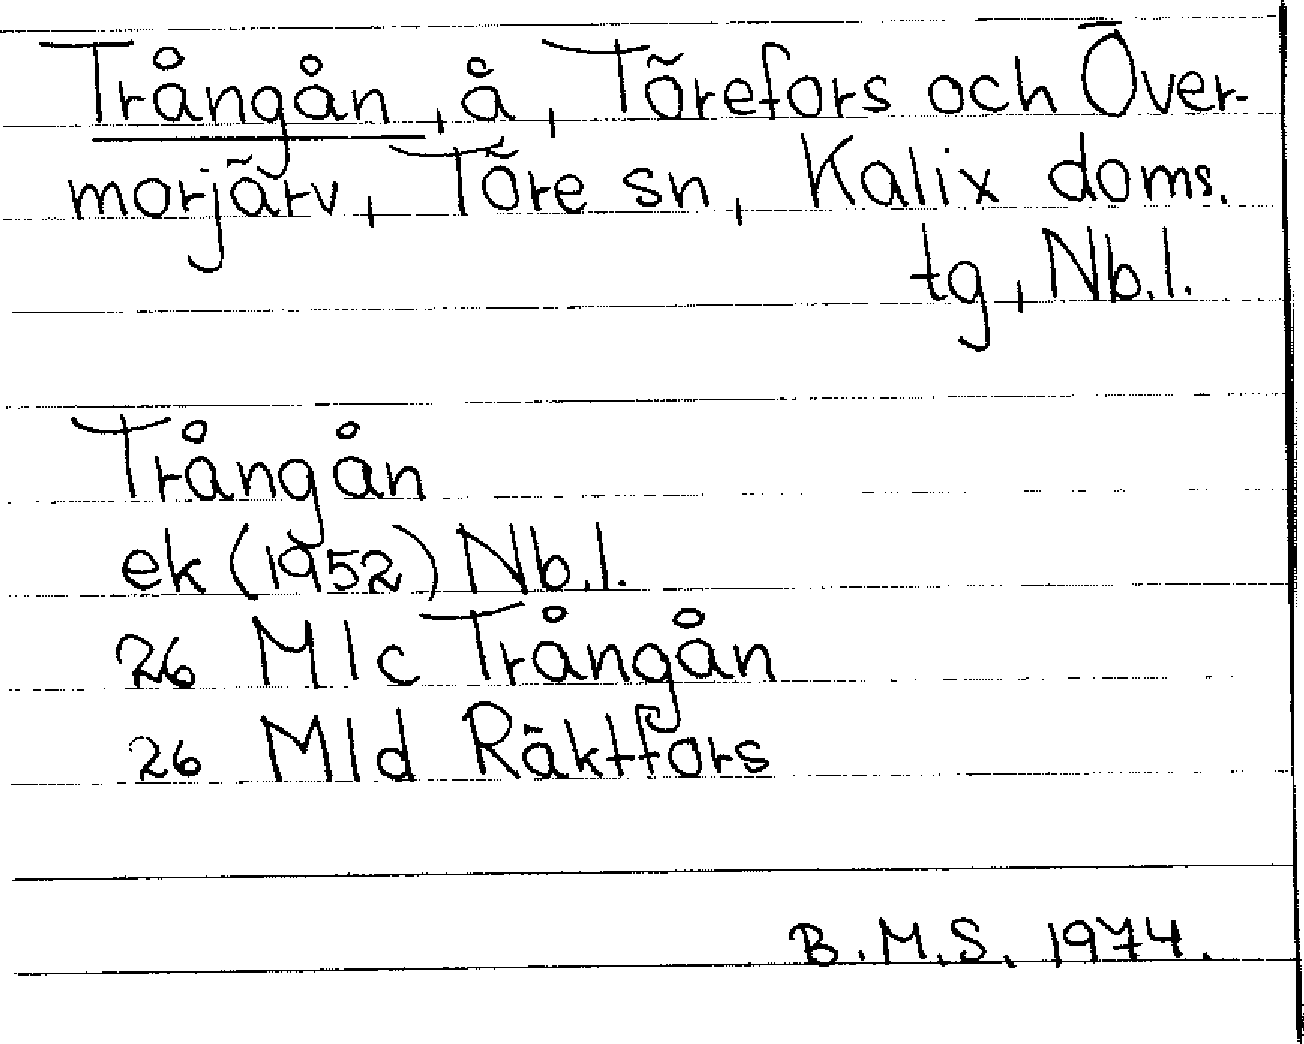 Trångån, å, Törefors och Över-
morjärv, Töre sn, Kalix doms.
tg, Nb.l.
Trångån
ek (1952) Nb.l.
26 M1c Trångån
26 M1d Räktfors
B.M.S. 1974.